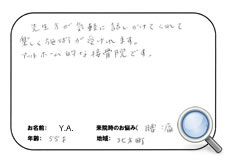 先生方が気軽に話しかけてくれて
楽しく施術が受けれます。
アットホーム的な接骨院です。
お名前: Y.A.  来院時のお悩み( 腰痛
年齢: 55才  地域: